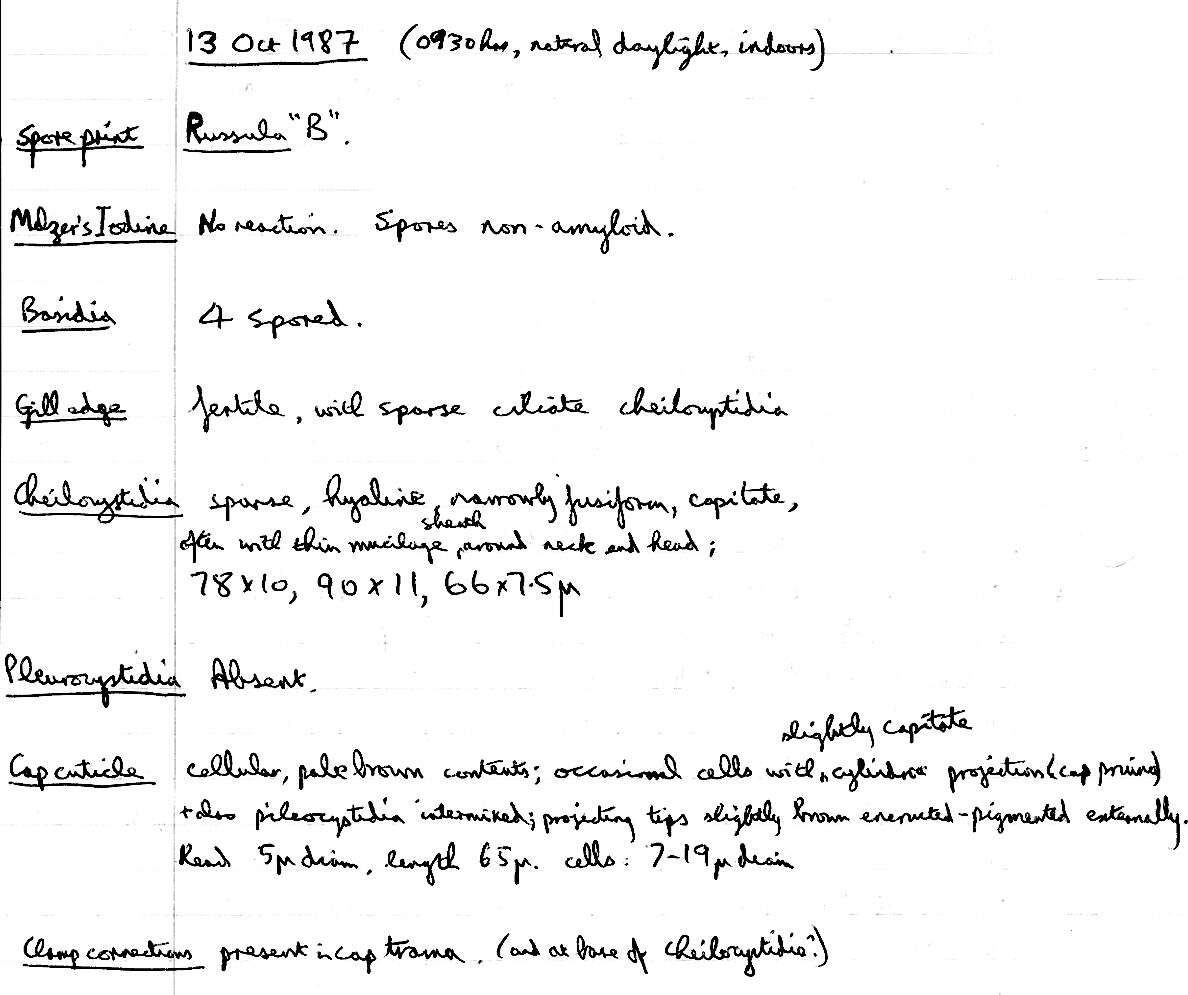 13 Oct 1987 (0930 hrs, natural daylight, indoors)
Spore print Russula "B".
Melzer's Iodine No reaction. Spores non-amyloid.
Basidia 4 spored.
Gill edge fertile, with sparse ciliate cheilocystidia
Cheilocystidia sparse, hyaline, narrowly fusiform, capitate,
sheath
often with thin mucilage, around neck and head;
78 x 10, 90 x 11, 66 x 7.5 µ
Pleurocystidia Absent.
slightly capitate
Cap cuticle cellular, pale brown contents; occasional cells with cylindric projection (cap pruina)
+ also pileocystidia intermixed; projecting tips slightly brown encrusted-pigmented externally.
Head 5µ diam, length 65µ. cells: 7-19µ diam
Clamp connections present in cap trama. (and at base of cheilocystidia?)